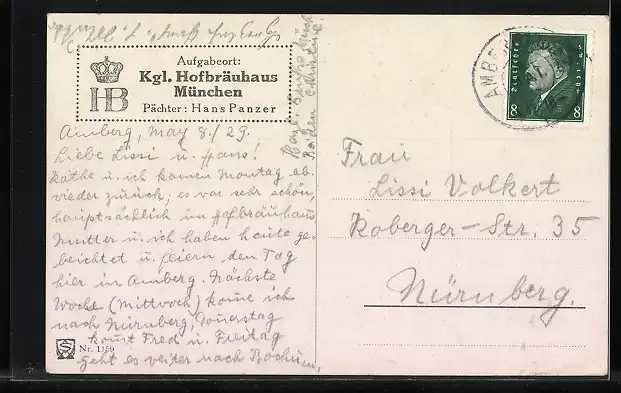 Aufgabeort:
Kgl. Hofbräuhaus
München
Pächter: Hans Panzer
HB
Amberg, May 8./29.
Liebe Lissi u. Hans!
Käthe u. ich kamen Montag ab.
wieder zurück; es war sehr schön,
hauptsächlich im Hofbräuhaus
Mutter u. ich haben heute ge-
beichtet u. feiern den Tag
hier in Amberg. Nächste
Woche (Mittwoch) komme ich
nach Nürnberg, Donerstag
komt Fred u. Freitag
geht es weiter nach Bochum.
Nr. 1159
AMBERG
Deutsches Reich
8 8
Frau
Lissi Volkert
Koberger-Str. 35
Nürnberg.